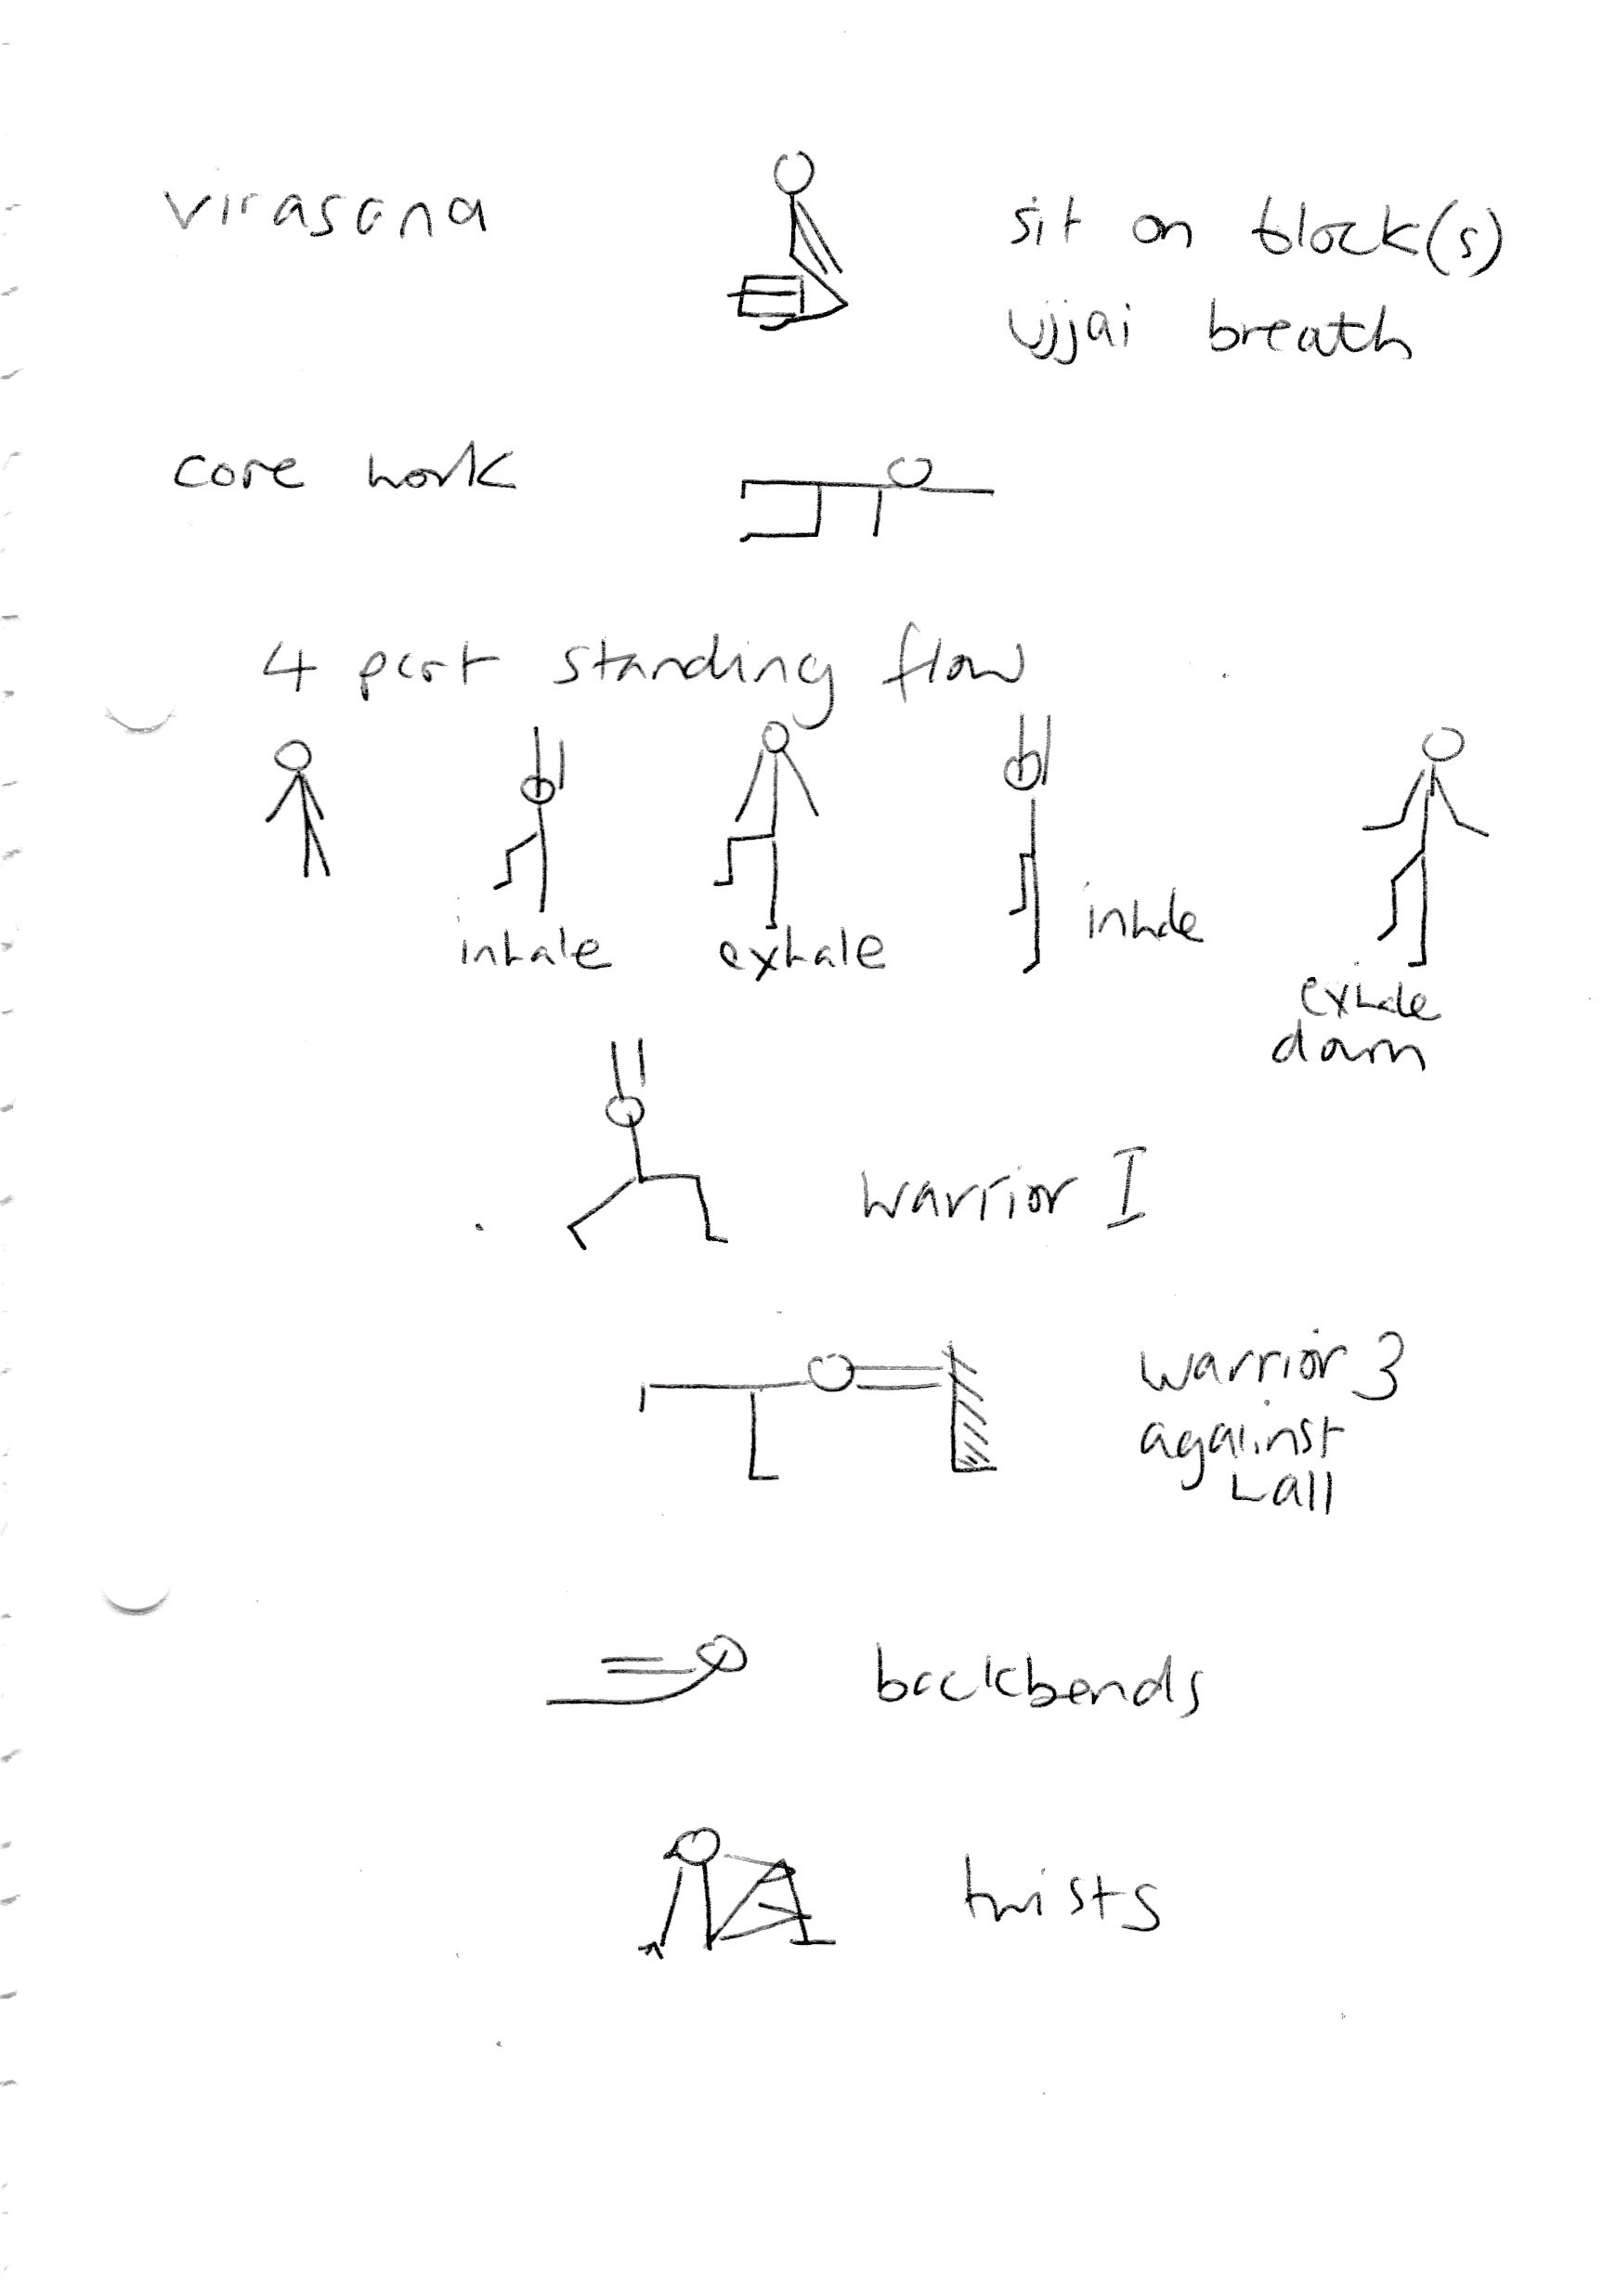 virasana
sit on block(s)
ujjai breath
core work
4 part standing flow
inhale
exhale
inhale
exhale
down
warrior I
warrior 3
against
wall
backbends
twists